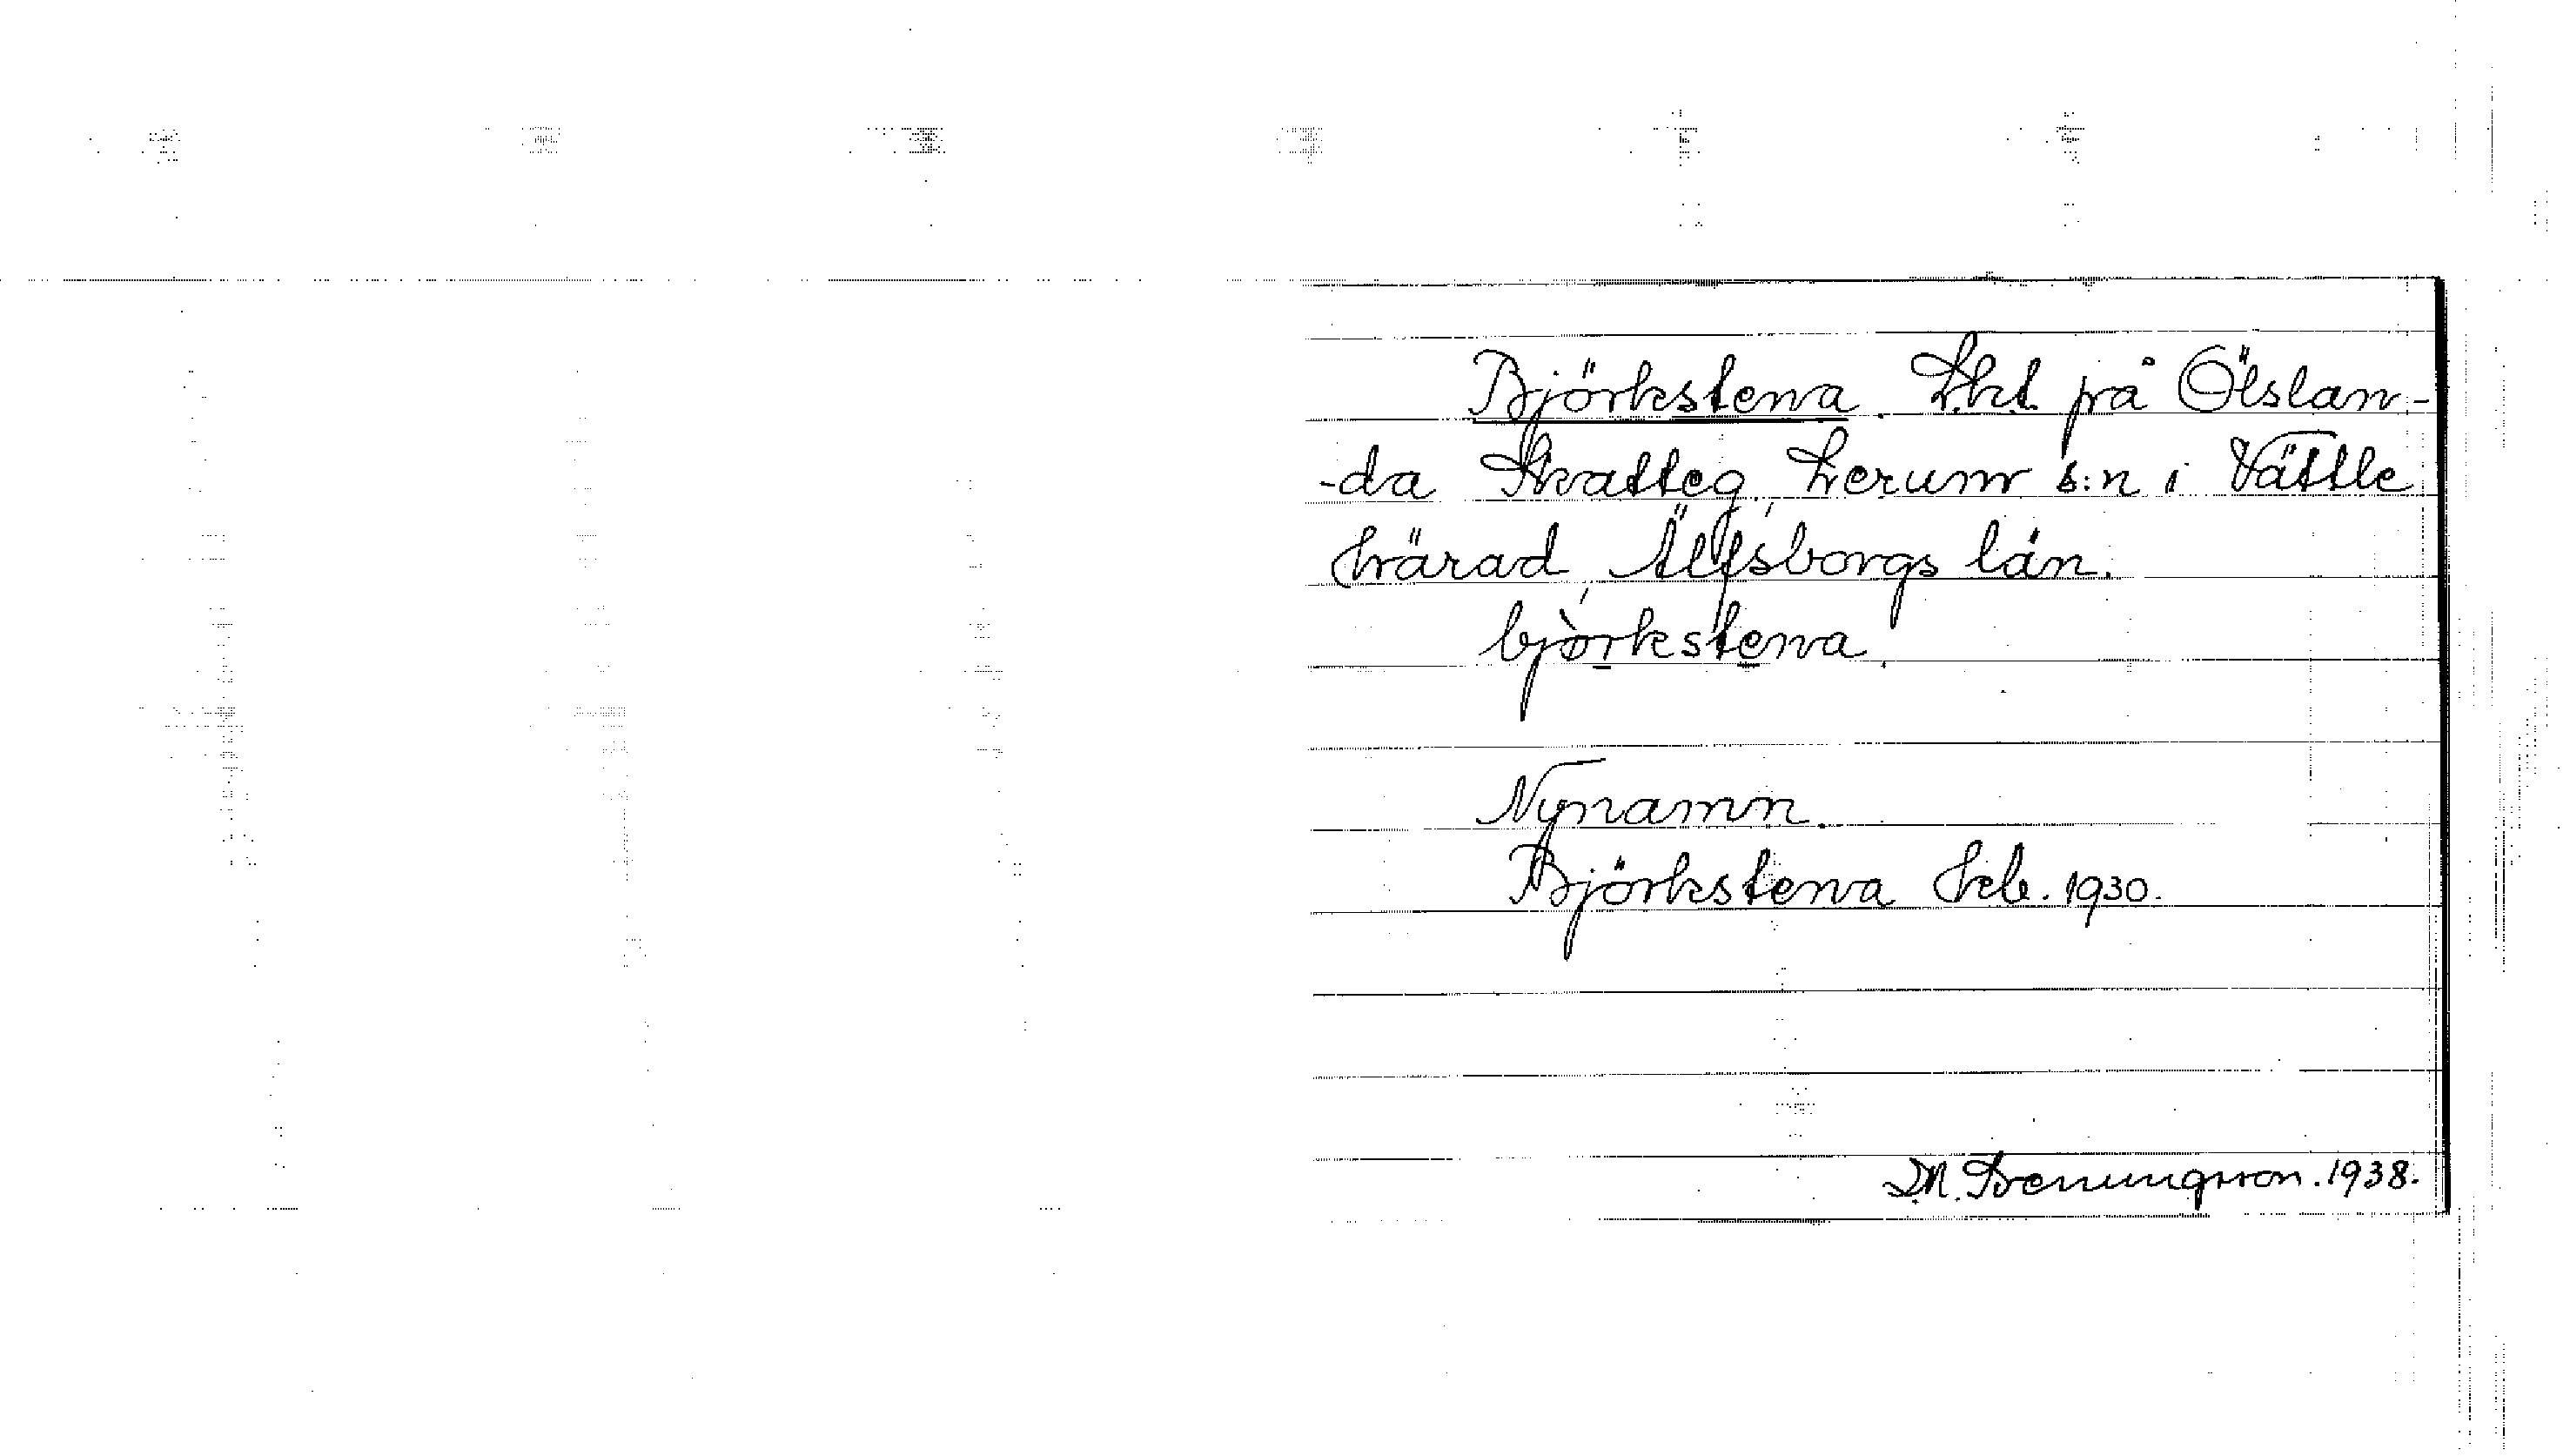 Björkstena. Lht på Ölslan-
-da Skatteg., Lerum s:n i Vättle
härad, Älfsborgs län.
björkstena.
Nynamn.
Björkstena Hcb. 1930.
D.N. 1938.